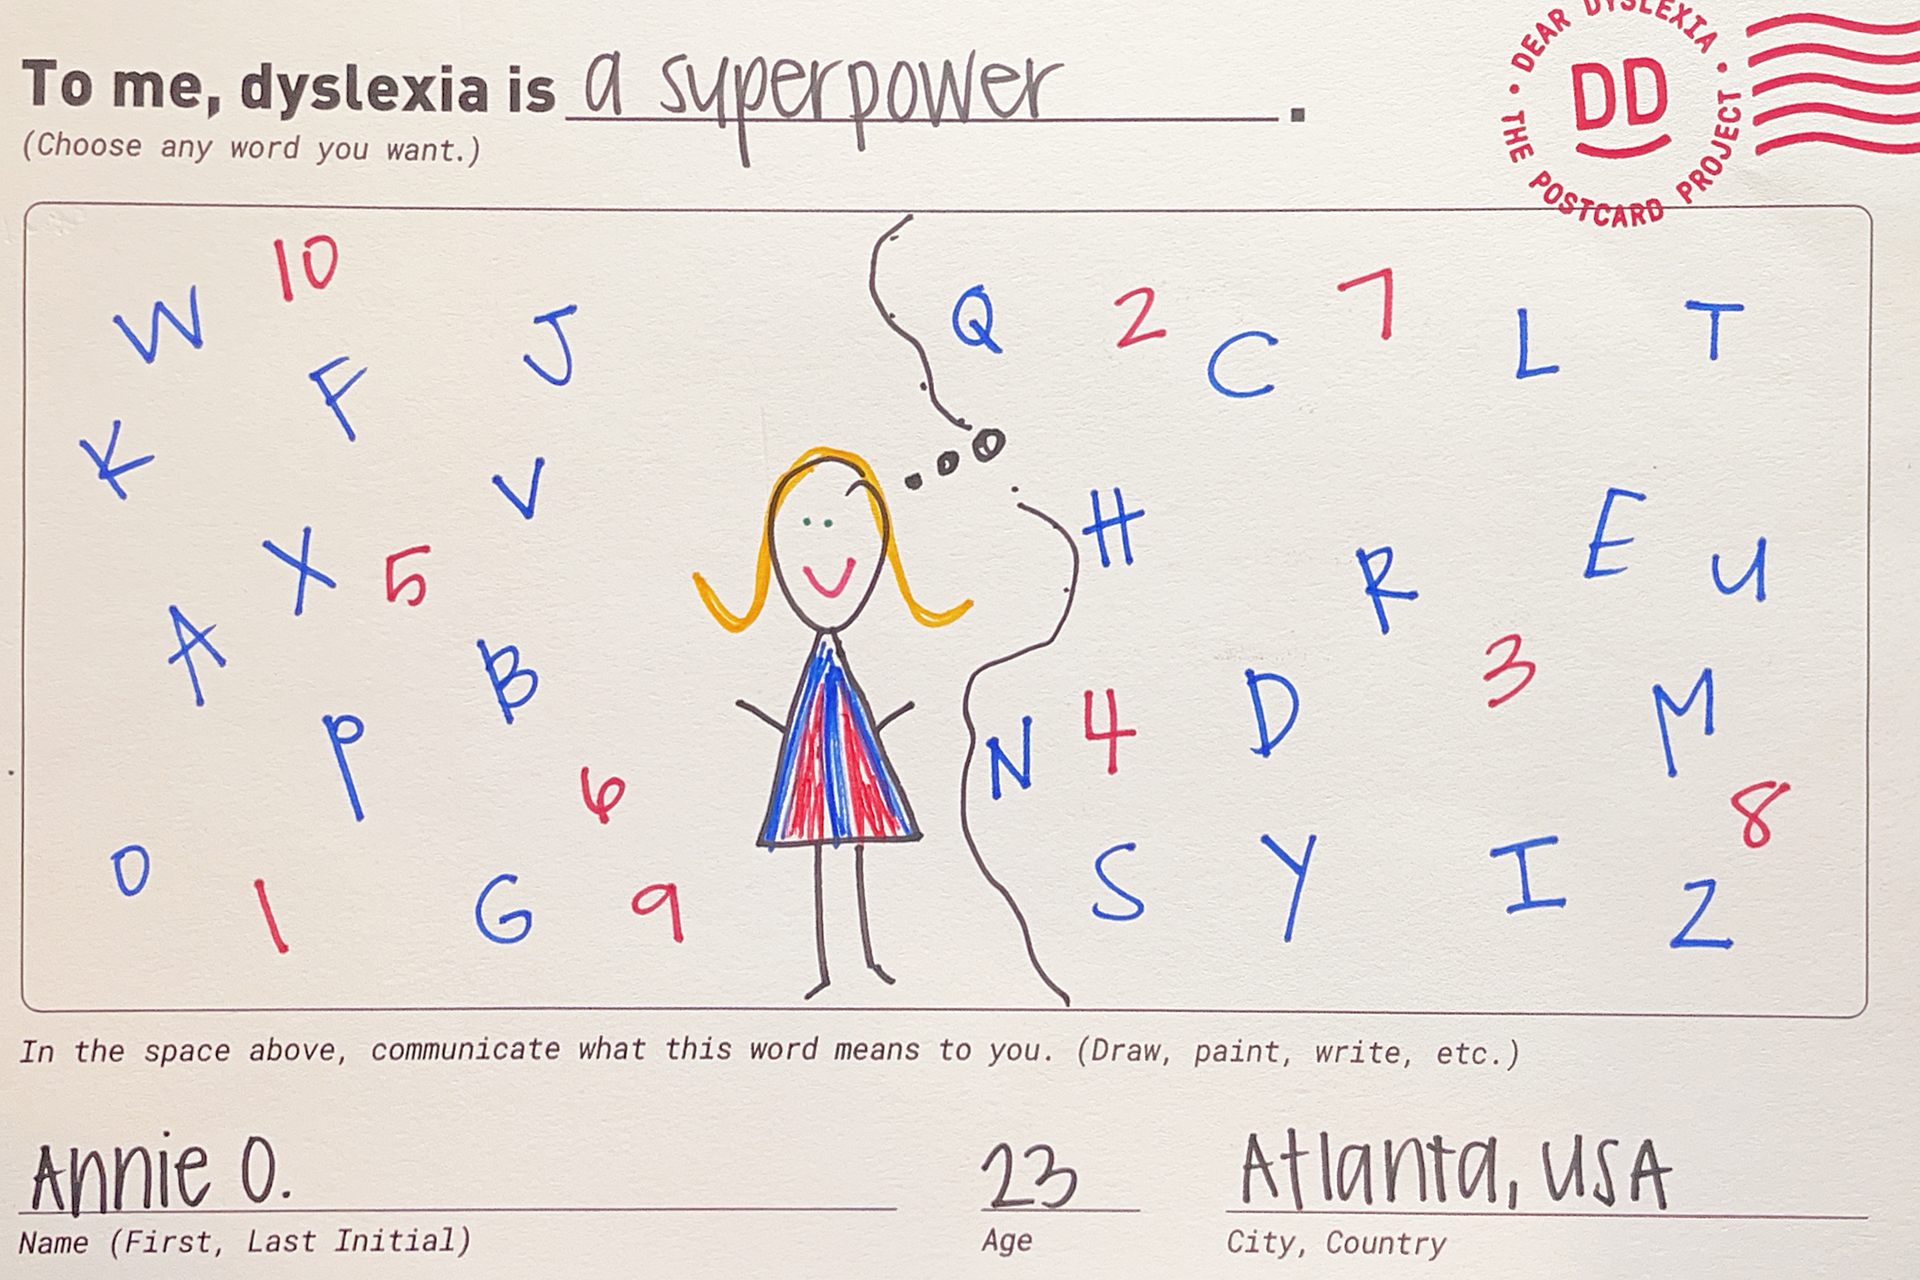 To me, dyslexia is a superpower.
(Choose any word you want.)
DEAR DYSLEXIA • THE POSTCARD PROJECT •
DD
10
W J Q 2 C 7 L T
F
K V H E
X 5 R U
A B 3
P N 4 D M
6 8
O 1 G 9 S Y I Z
In the space above, communicate what this word means to you. (Draw, paint, write, etc.)
Annie O. 23 Atlanta, USA
Name (First, Last Initial) Age City, Country